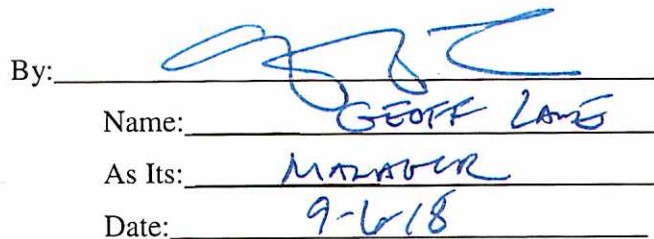 By:
Name: GEOFF LANE
As Its: MANAGER
Date: 9-6-18